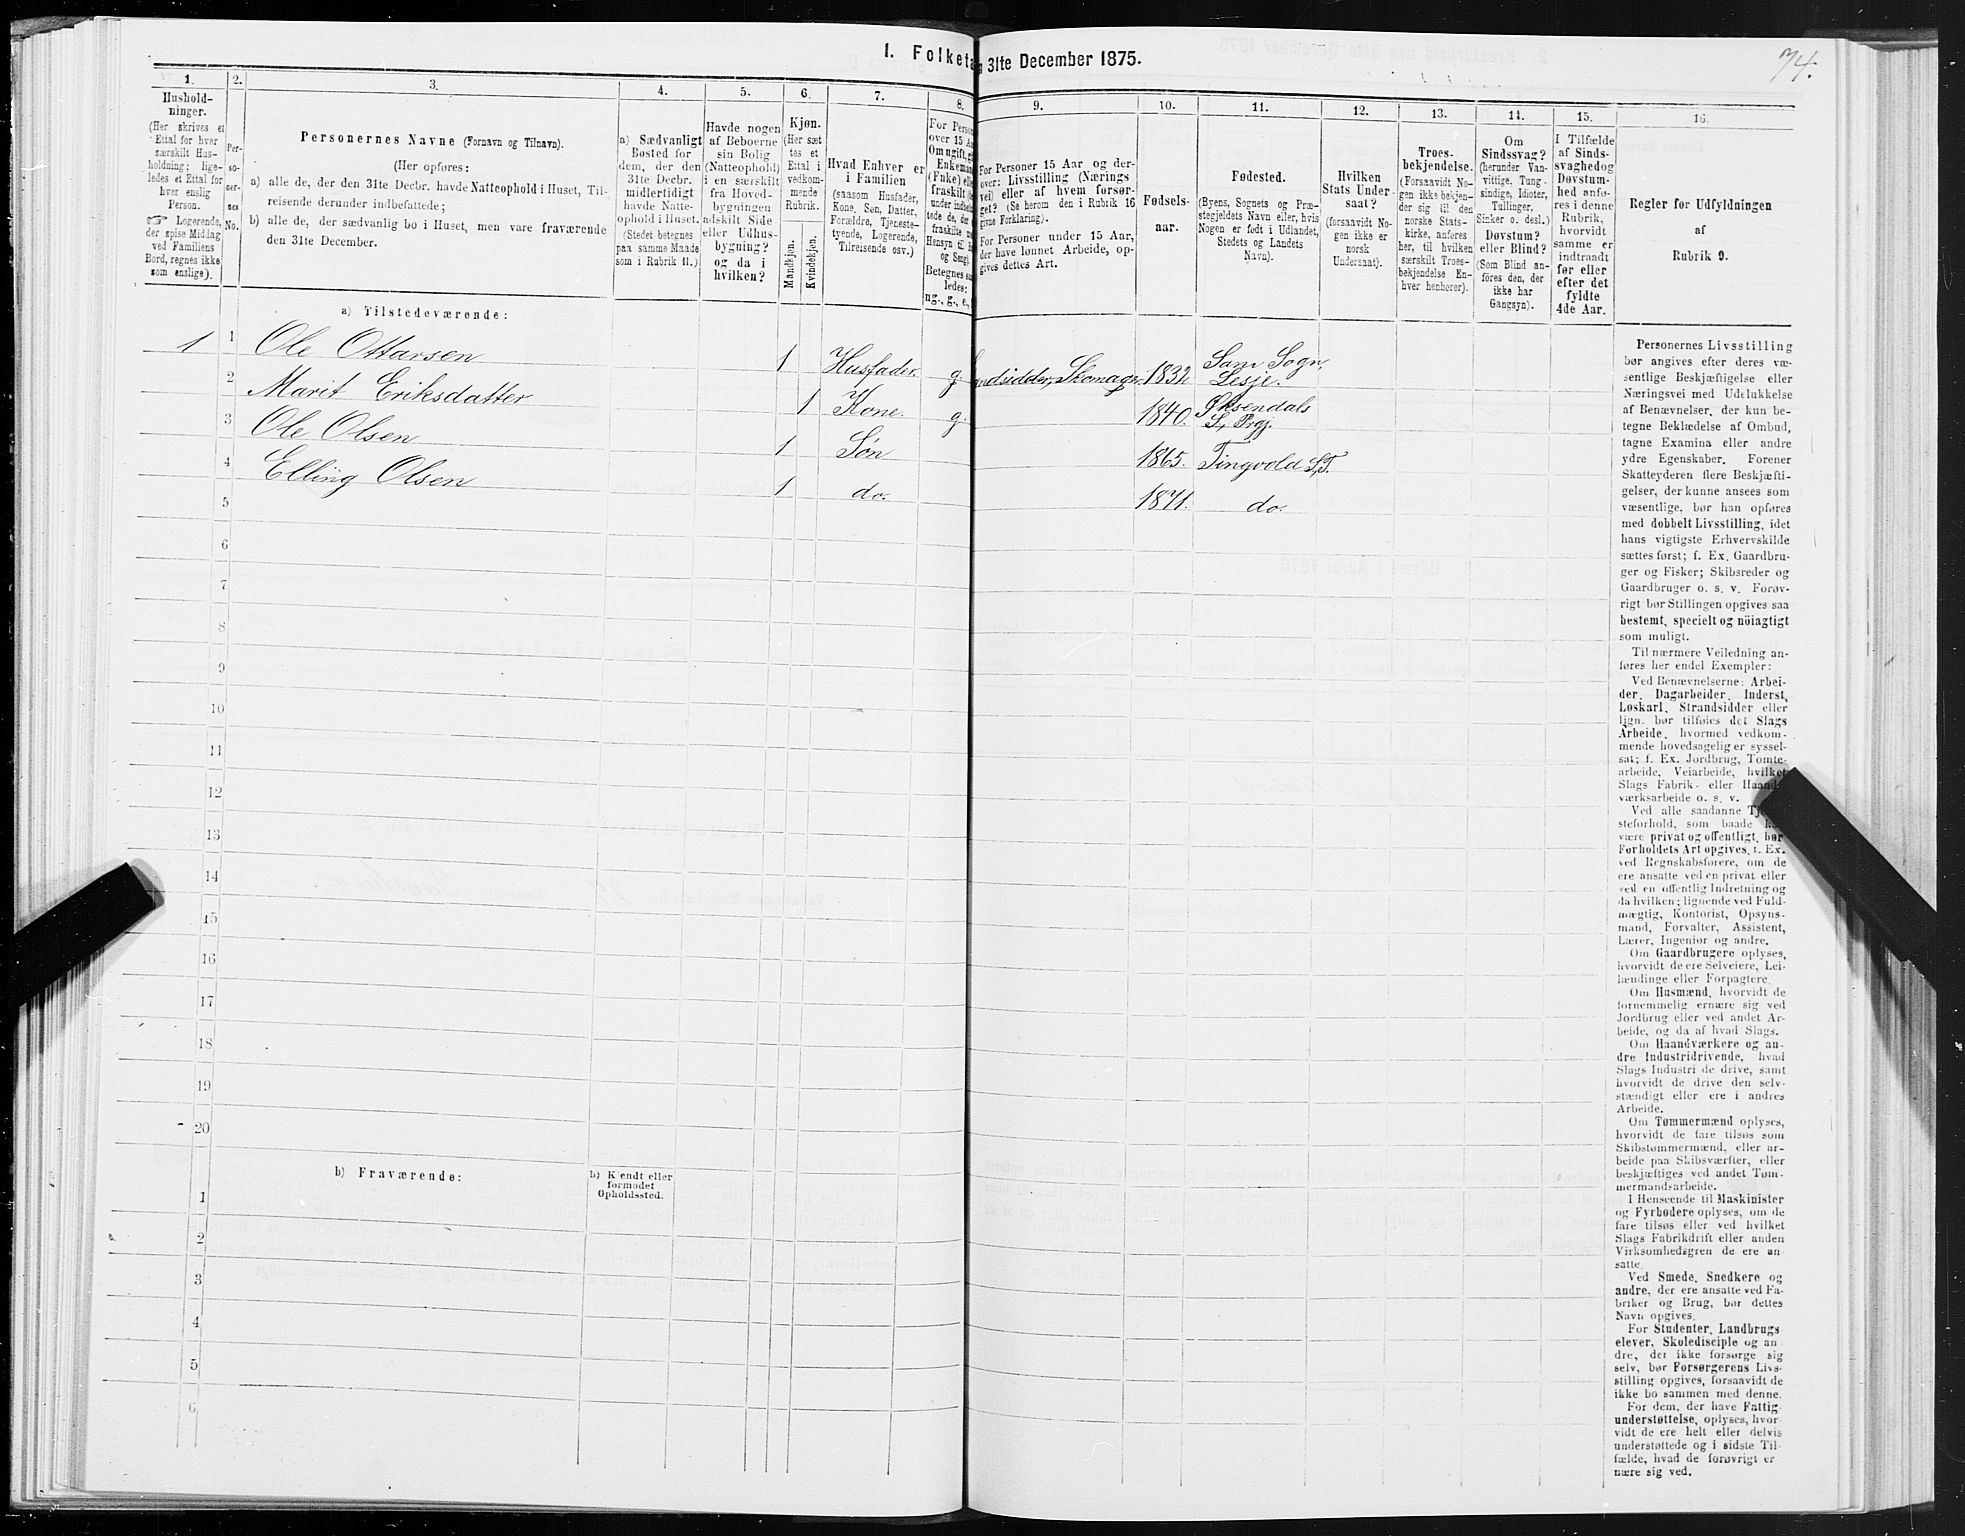 1. Folketa
n 31te December 1875.
74.
1.
2.
3.
4.
5.
6.
7.
8.
9.
10.
11.
12.
13.
14.
15.
16.
Hushold-
ninger.
(Her skrives et
Ettal for hver
særskilt Hus-
holdning; lige-
ledes et Ettal for
hver enslig
Person.
☞ Logerende,
der spise Middag
ved Familiens
Bord, regnes ikke
som enslige).
Per-
so-
ner-
nes
No.
Personernes Navne (Fornavn og Tilnavn).
(Her opføres:
a) alle de, der den 31te Decbr. havde Natteophold i Huset, Til-
reisende derunder indbefattede;
b) alle de, der sædvanlig bo i Huset, men vare fraværende
den 31te December.
a) Sædvanligt
Bosted for
dem, der den
31te Decbr.
midlertidigt
havde Natte-
ophold i Huset.
(Stedet betegnes
paa samme Maade
som i Rubrik 11.)
Havde nogen
af Beboerne
sin Bolig
(Natteophold)
i en særskilt
fra Hoved-
bygningen
adskilt Side
eller Udhus-
bygning?
og da i
hvilken?
Kjøn.
(Her sæt
tes et
Ettal i
vedkom-
mende
Rubrik.
Mandkjøn.
Kvindekjøn.
Hvad Enhver er
i Familien
(saasom Husfader,
Kone, Søn, Datter,
Forældre, Tjeneste-
tyende, Logerende,
Tilreisende osv.)
For Perso
over 15 Aa
Om ugift, g
Enkeman
(Enke) elle
fraskilt
ng., g., e.,
For Personer 15 Aar og der-
over: Livsstilling (Nærings
vei) eller af hvem forsør-
get? (Se herom den i Rubrik 16
givne Forklaring).
For Personer under 15 Aar,
der have lønnet Arbeide, op-
gives dettes Art.
Fødsels-
aar.
Fødested.
(Byens, Sognets og Præ-
stegjeldets Navn eller, hvis
Nogen er født i Udlandet,
Stedets og Landets
Navn).
Hvilken
Stats Under-
saat?
(forsaavidt No-
gen ikke er
norsk
Undersaat).
Troes-
bekjendelse.
(Forsaavidt No-
gen ikke bekjen-
der sig til den
norske Stats-
kirke, anføres
her, til hvilken
særskilt Troes-
bekjendelse En-
hver henhører).
Om
Sindssvag?
(herunder Van-
vittige, Tung-
sindige, Idioter,
Tullinger,
Sinker o. desl.)
Døvstum?
eller Blind?
(Som Blind an-
føres den, der
ikke har
Gangsyn).
I Tilfælde
af Sinds-
svaghed og
Døvstum-
hed anfø-
res i denne
Rubrik,
hvorvidt
samme er
indtraadt
før eller
efter det
fyldte
4de Aar.
Regler for Udfyldningen
af
Rubrik 9.
a) Tilstedeværende:
1 1 Ole Ottarsen 1 Husfader. g. andsidder, Skomager. 1832 Sam Sogn, Lesje.
2 Marit Eriksdatter 1 Kone. g. 1840. Øksendals S, Prgj.
3 Ole Olsen 1 Søn 1865. Tingvold S,T.
4 Elling Olsen 1 do. 1871. do.
5
6
7
8
9
10
11
12
13
14
15
16
17
18
19
20
b) Fraværende:
b) Kjendt eller
formodet
Opholdssted.
1
2
3
4
5
6
Personernes Livsstilling
bør angives efter deres væ-
sentlige Beskjæftigelse eller
Næringsvei med Udelukkelse
af Benævnelser, der kun be-
tegne Beklædelse af Ombud,
tagne Examina eller andre
ydre Egenskaber. Forener
Skatteyderen flere Beskjæfti-
gelser, der kunne ansees som
væsentlige, bør han opføres
med dobbelt Livsstilling, idet
hans vigtigste Erhvervskilde
sættes først; f. Ex. Gaardbru-
ger og Fisker; Skibsreder og
Gaardbruger o. s. v. Forøv-
rigt bør Stillingen opgives saa
bestemt, specielt og nöiagtigt
som muligt.
Til nærmere Veiledning an-
føres her endel Exempler:
Ved Benævnelserne: Arbei-
der, Dagarbeider, Inderst,
Løskarl, Strandsidder eller
lign. bør tilføies det Slags
Arbeide, hvormed vedkom-
mende hovedsagelig er syssel-
sat; f. Ex. Jordbrug, Tomte-
arbeide, Veiarbeide, hvilket
Slags Fabrik- eller Haand-
værksarbeide o. s. v.
Ved alle saadanne Tje
steforhold, som baade
være privat og offentligt, bør
Forholdets Art opgives, f. Ex.
ved Regnskabsførere, om de
ere ansatte ved en privat eller
ved en offentlig Indretning og
da hvilken; lignende ved Fuld-
mægtig, Kontorist, Opsyns-
mand, Forvalter, Assistent,
Lærer, Ingeniør og andre.
Om Gaardbrugere oplyses,
hvorvidt de ere Selveiere, Lei-
lændinge eller Forpagtere.
Om Husmænd, hvorvidt de
fornemmelig ernære sig ved
Jordbrug eller ved andet Ar-
beide, og da af hvad Slags.
Om Haandværkere og an-
dre Industridrivende, hvad
Slags Industri de drive, samt
hvorvidt de drive den selv-
stændigt eller ere i andres
Arbeide.
Om Tømmermænd oplyses,
hvorvidt de fare tilsøs som
Skibstømmermænd, eller ar-
beide paa Skibsværfter, eller
beskjæftiges ved andet Tøm-
mermandsarbeide.
I Henseende til Maskinister
og Fyrbødere oplyses, om de
fare tilsøs eller ved hvilket
Slags Fabrikdrift eller anden
Virksomhedsgren de ere an-
satte.
Ved Smede, Snedkere og
andre, der ere ansatte ved Fa-
briker og Brug, bør dettes
Navn opgives.
For Studenter, Landbrugs
elever, Skoledisciple og an-
dre, der ikke forsørge sig
selv, bør Forsørgerens Livs-
stilling opgives, forsaavidt de
ikke bo sammen med denne.
For dem, der have Fattig-
understøttelse, oplyses, hvor-
vidt de ere helt eller delvis
understøttede og i sidste Til-
fælde, hvad de forøvrigt er
nære sig ved.